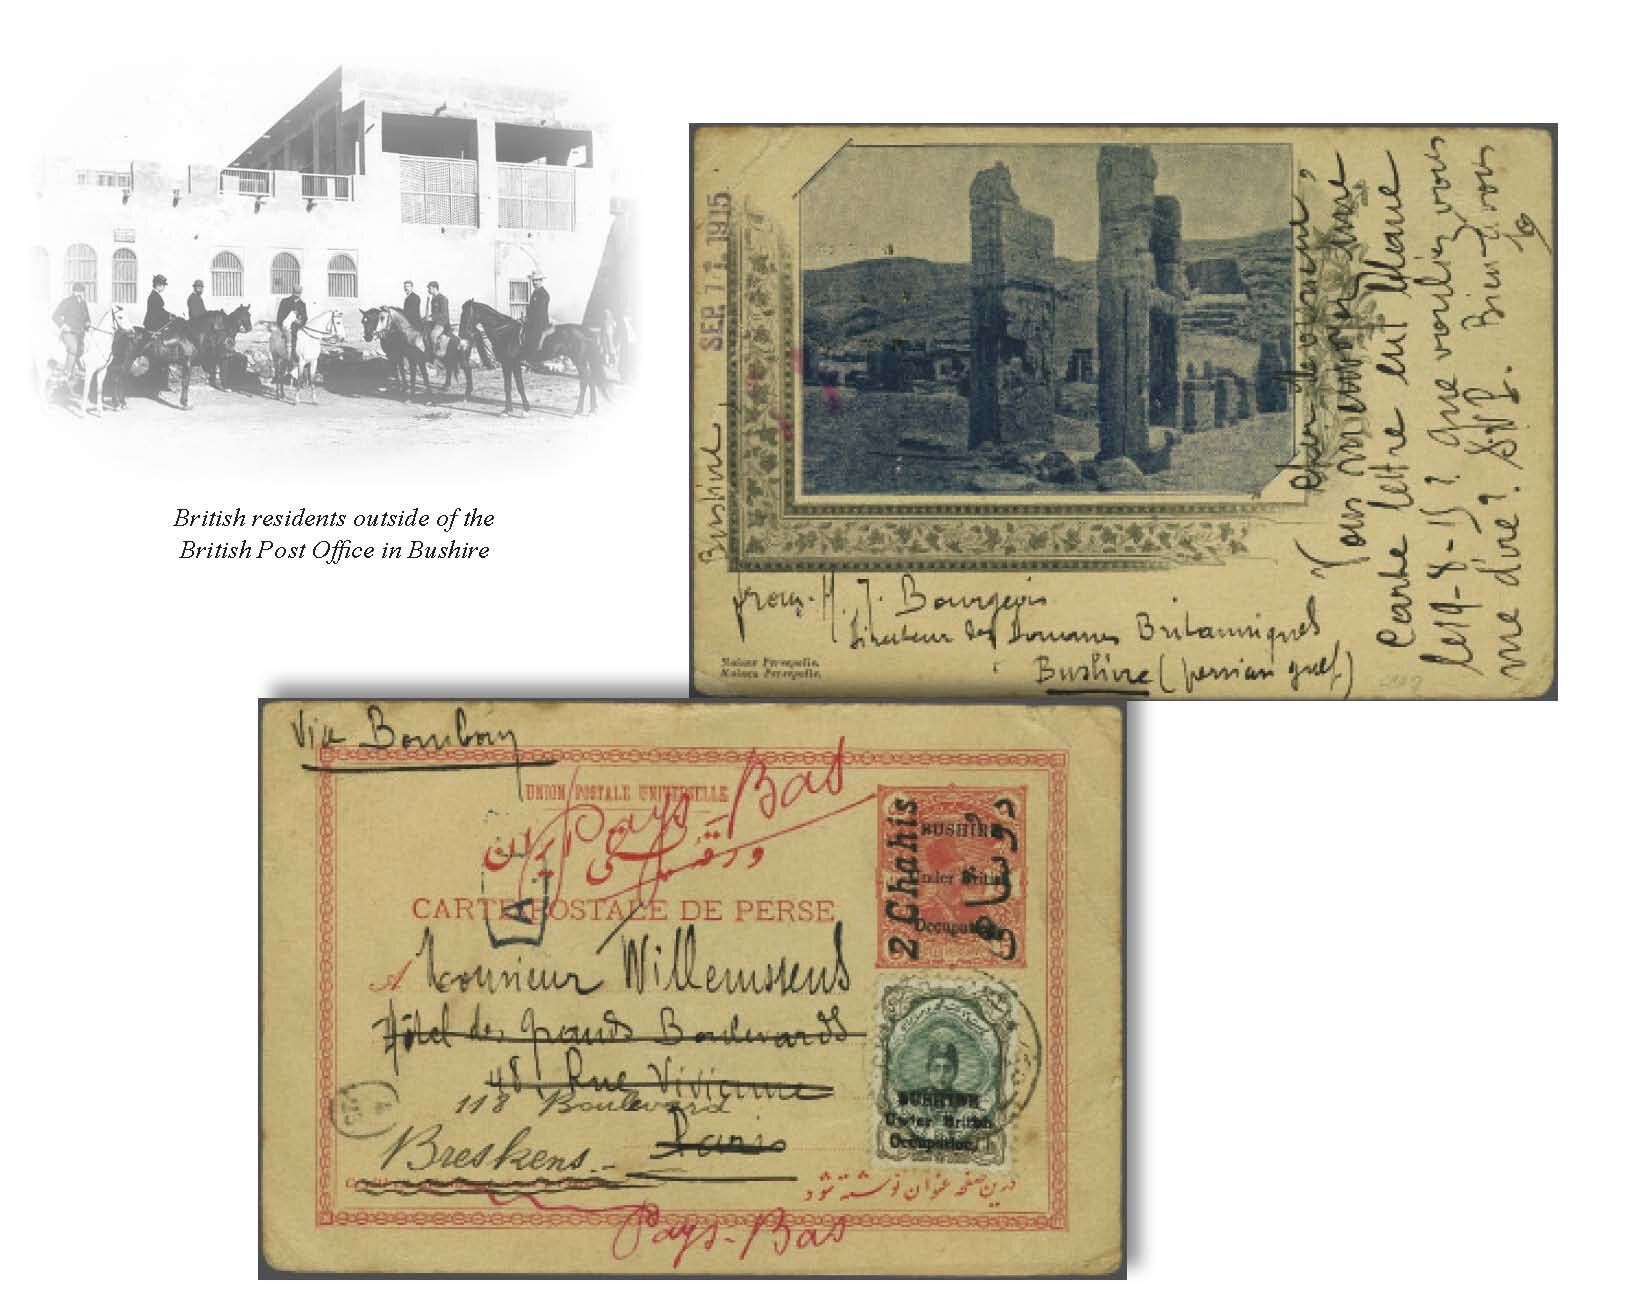 British residents outside of the
British Post Office in Bushire
Bushire SEP. 11. 1915
Cher Monsieur,
Vous m'envoyez une
Carte lettre en blanc
le 19-8-15? que vouliez vous
me dire? S.V.P. Bien à vous
from. H. J. Bourgeois
Directeur des Douanes Britanniques
Bushire (persian gulf)
Ruines Persepolis.
Via Bombay
UNION POSTALE UNIVERSELLE
Pays-Bas
ورقه پستی ایران
CARTE POSTALE DE PERSE
A
A Monsieur Willemssens
Hôtel des grands Boulevards
48, Rue Vivienne
118 Boulevard
Paris
Breskens.
درین صفحه عنوان نوشته شود
Pays-Bas
2 Chahis
BUSHIRE
Under British
Occupation.
BUSHIRE
Under British
Occupation.